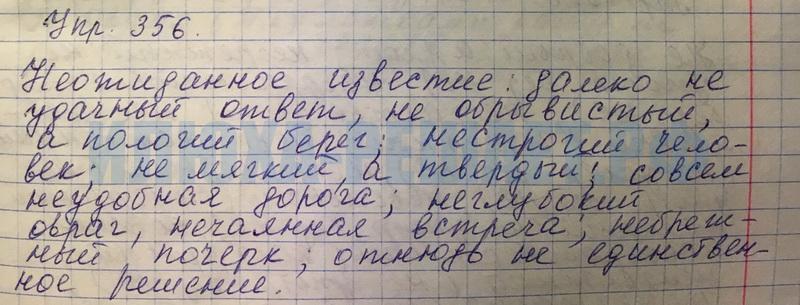 Упр. 356.
Неожиданное известие; далеко не
удачный ответ, не обрывистый,
а пологий берег; нестрогий чело-
век; не мягкий, а твердый; совсем
неудобная дорога; неглубокий
овраг, нечаянная встреча; небреж-
ный почерк; отнюдь не единствен-
ное решение.